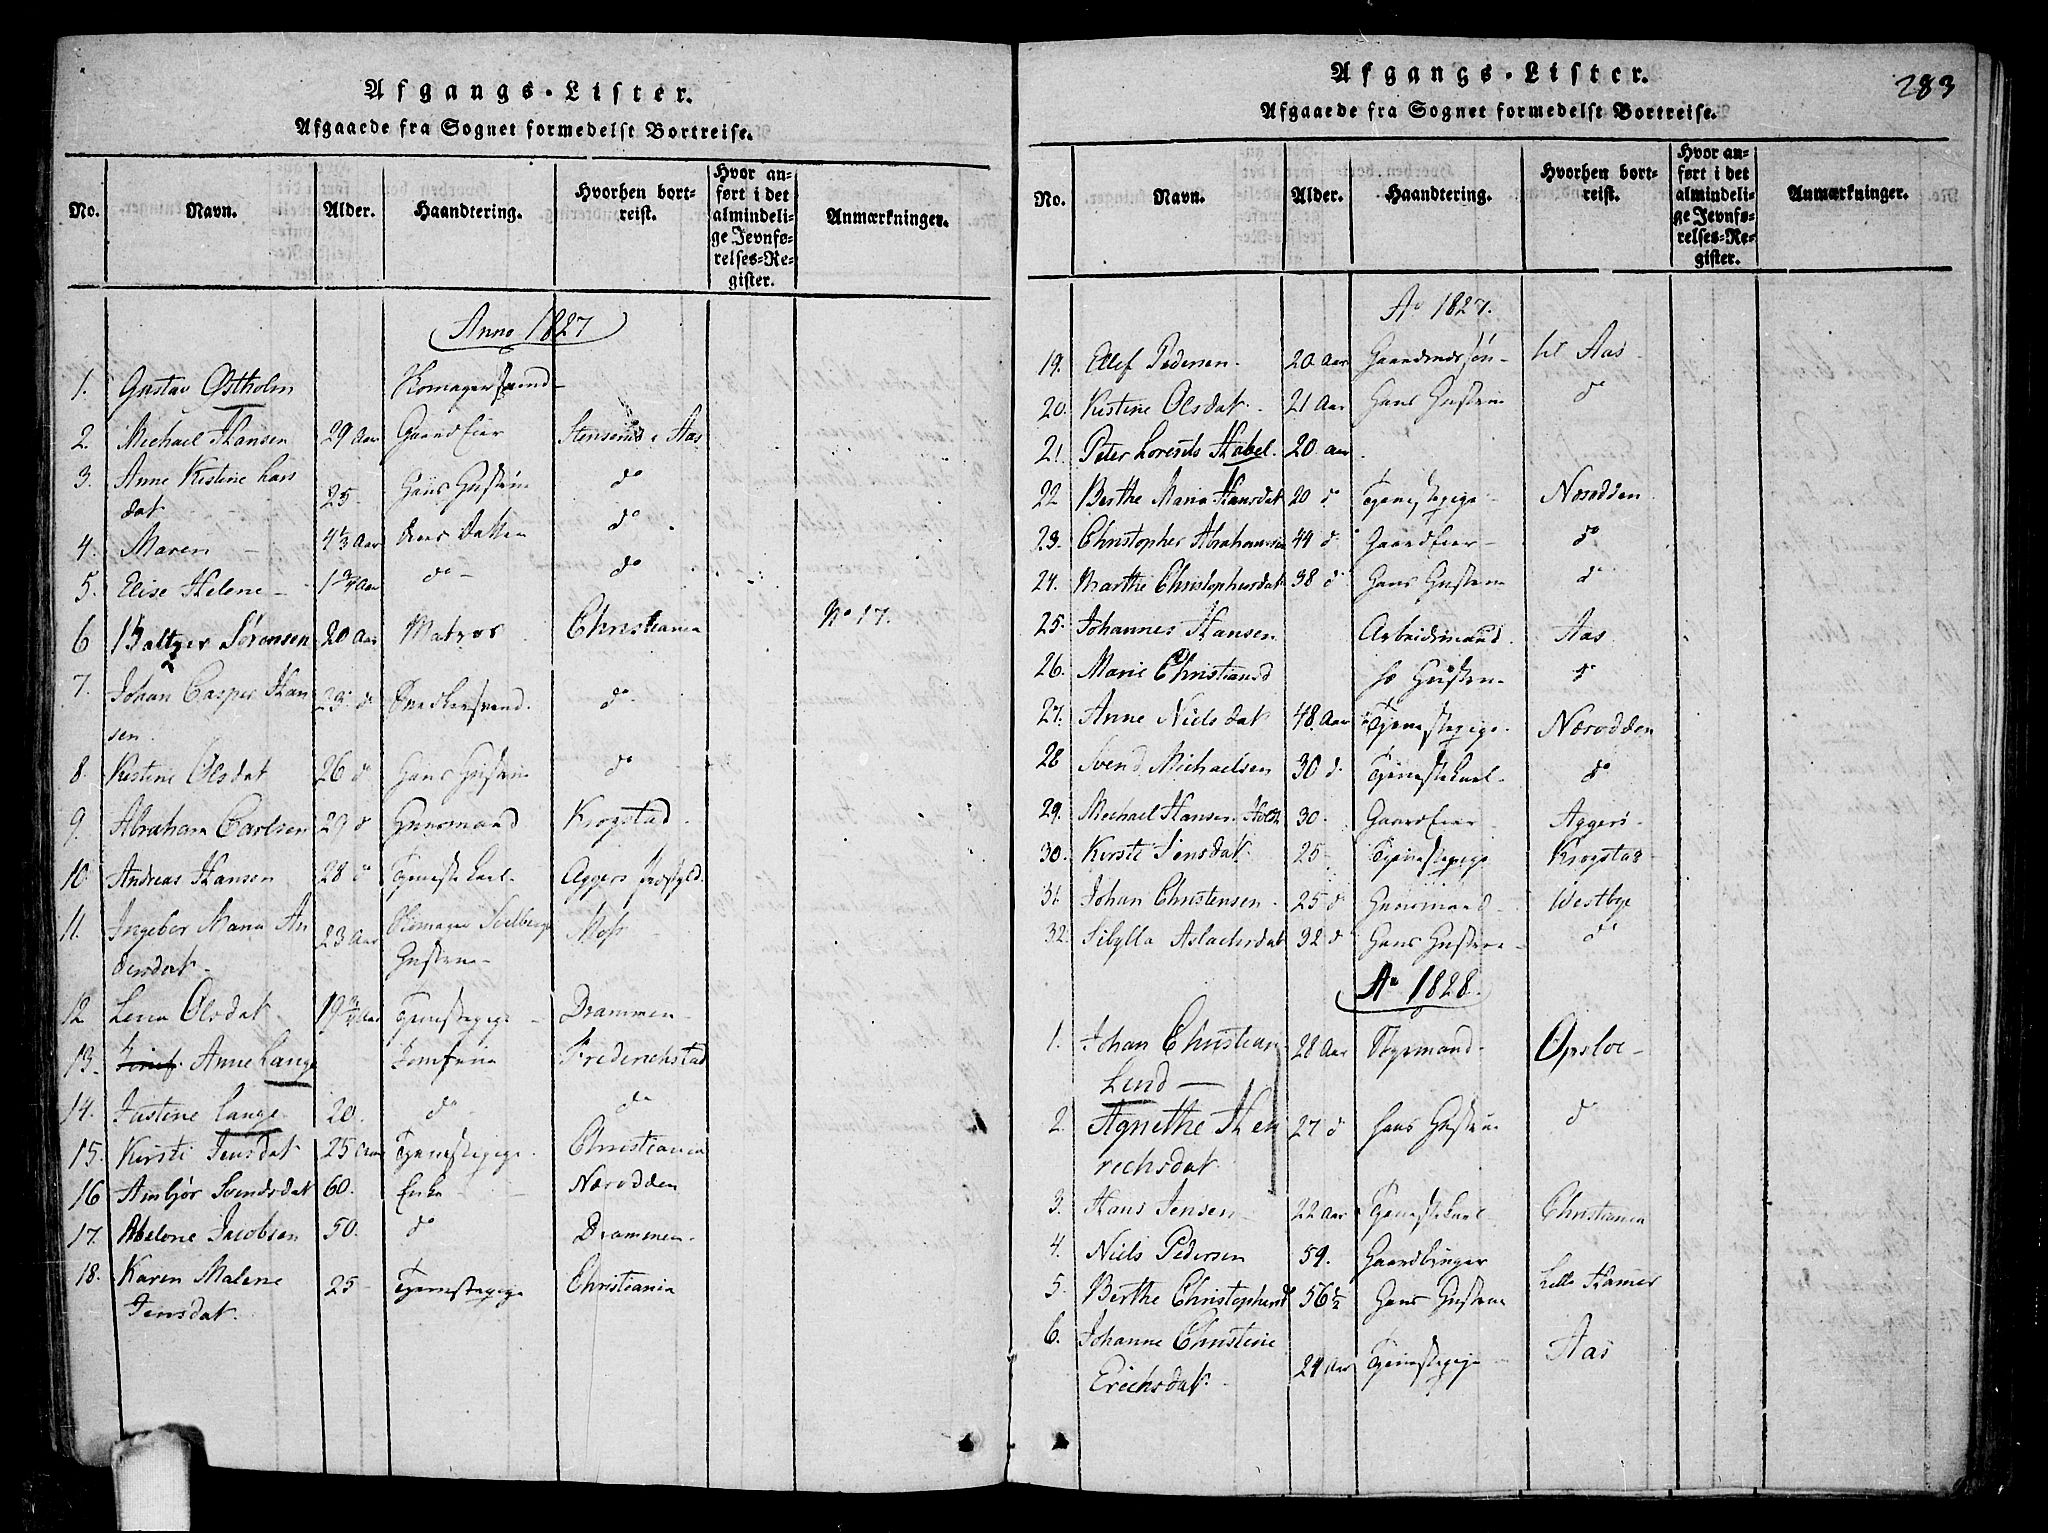 Afgangs-Lister.
Afgaaede fra Sognet formedelst Bortreise.
No. Navn. Alder. Haandtering. Hvorhen bortreist. Hvor anført i det almindelige Jevnførelses-Register. Anmærkninger.
Anno 1827
1. Gustav Ostholm Skomagersvend
2. Michael Hansen 29 Aar Gaardeier Stensrud i Aas
3. Anne Kistine Lars
dat 25 Hans Hustrue do
4. Maren 4 1/3 Aar Deres Datter do
5. Elise Helene 1 3/4 Aar do do
6 Baltzer Sörensen 20 Aar Matros Christiania No 17.
7. Johan Casper Han
sen 25 do Snedkersvend do
8. Kistine Olsdat 26 do Hans Hustrue do
9. Abraham Carlsen 29 do Huusmand Krogstad
10. Andreas Hansen 28 do Tjenestekarl Aggers
11. Ingebor Maria An
dersdat 23 Aar Skomager Hustrue Moss
12 Lena Olsdat 19 3/4 Aar Tjenestepige Drammen
13. Anne Lange Jomfrue Frederichstad
14. Justine Lange 20. do do
15. Kirsti Jensdat 25 Aar Tjenestepige Christiania
16 Ambjör Svendsdat 60. Enke Næsodden
17. Abelone Jacobsen 50. do Drammen
18. Karen Malene
Jensdat. 25 Tjenestepige Christiania
283
Afgangs-Lister.
Afgaaede fra Sognet formedelst Bortreise.
No. Navn. Alder. Haandtering. Hvorhen bortreist. Hvor anført i det almindelige Jevnførelses-Register. Anmærkninger.
Ao 1827.
19. Ellef Pedersen 20 Aar Gaardmandssön til Aas
20. Kistine Olsdat 21 Aar Hans Hustrue do
21. Peter Lorents Habel 20. Aar
22 Berthe Maria Hansdat 20 do Tjenestepige Næsodden
23. Christopher Abrahamsen 44 do Gaardeier do
24. Marthe Christophersdat 38 do Hans Hustrue do
25. Johannes Hansen Arbeidsmand Aas
26. Marie Christiansd Hs Hustrue do
27. Anne Nielsdat 48. Aar Tjenestepige Næsodden
28 Svend Michaelsen 30 do Tjenestekarl do
29. Michael Hansen Holst 30. Gaardeier Aggers
30. Kirsti Jensdat 25 Tjenestepige Krogstad
31. Johan Christensen 25 do Huusmand Westbye
32. Sibylla Aslachsdat 32 do Hans Hustrue do
Ao 1828.
1. Johan Christian
Lind 28 Aar Opsloe
2. Agnethe Hen
richsdat 27 do Hans Hustrue do
3. Hans Jensen 22 Aar Tjenestekarl Christiania
4. Niels Pedersen 59. Gaardbruger
5. Berthe Christophersd 56 1/2 Hans Hustrue Lille Hamer
6. Johanne Christine
Erichsdat. 24 Aar Tjenestepige Aas